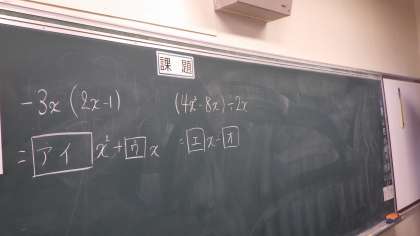 課題
-3x(2x-1)
= アイ x²+ウx
(4x²-8x)÷2x
= エx-オ